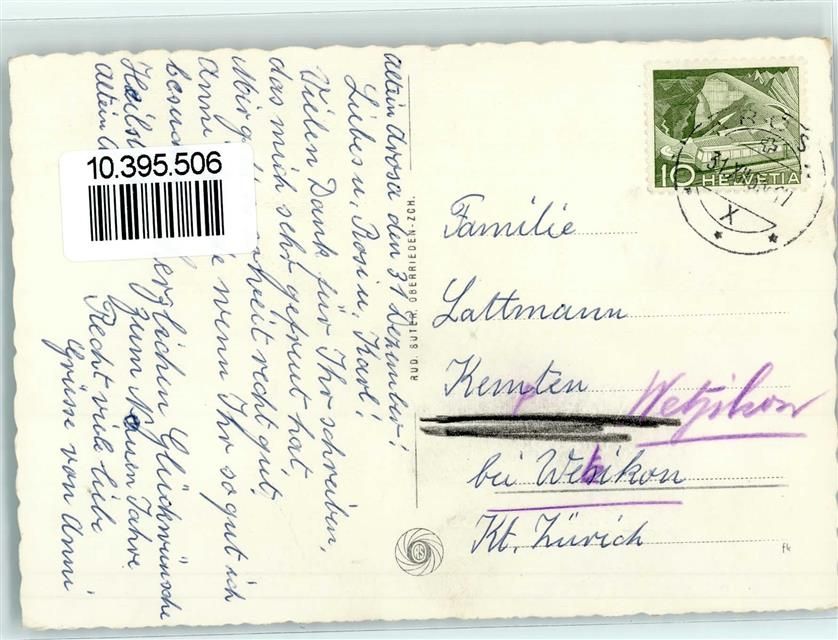 Altein Arosa den 31 Dezember!
Liebes u, Rosi u, Karl!
Vielen Dank für Ihr schreiben,
das mich sehr gefreut hat,
Mir g heit recht gut,
Anni wenn Ihr so gut ich
besu
Heils erglichen Glückwünsche
Altein zum Neuen Jahre
Recht viele liebe
Grüsse von Anni
10.395.506
RUD. SUTER, OBERRIEDEN-ZCH.
10 HELVETIA
31
X
Familie
Lattmann
Kempten
Wetzikon
bei Wetzikon
Kt. Zürich
RS
fk